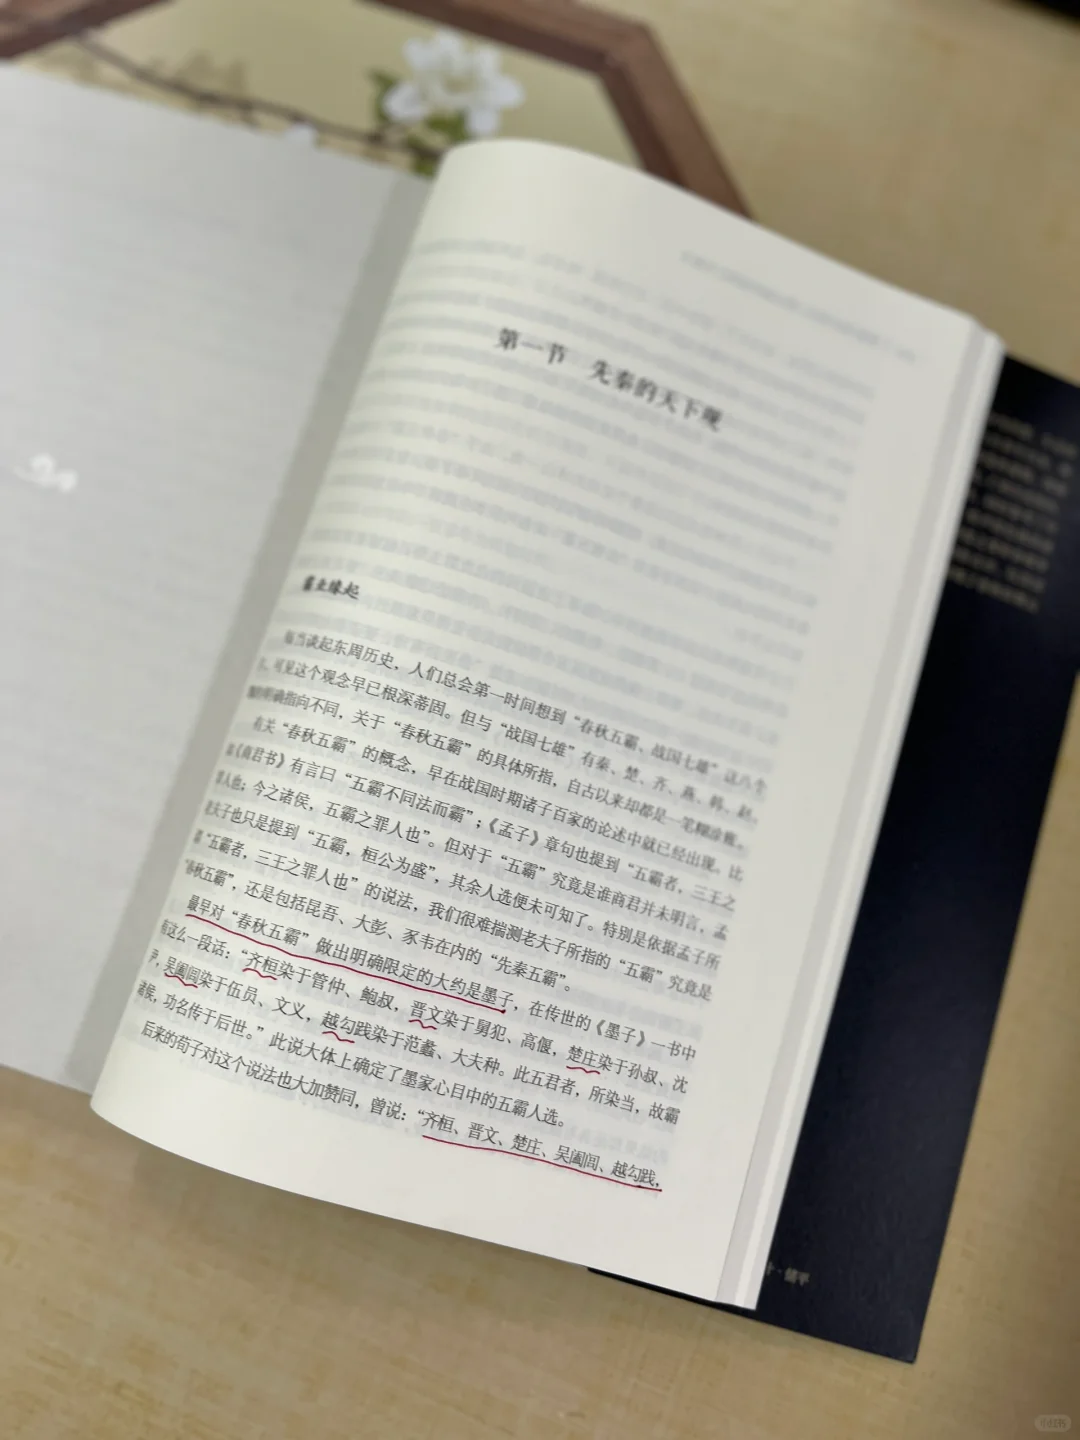 第一节 先秦的天下观
霸业缘起
每当谈起东周历史，人们总会第一时间想到“春秋五霸、战国七雄”这八个
字，可见这个观念早已根深蒂固。但与“战国七雄”有秦、楚、齐、燕、韩、赵、
魏的明确指向不同，关于“春秋五霸”的具体所指，自古以来却都是一笔糊涂账。
有关“春秋五霸”的概念，早在战国时期诸子百家的论述中就已经出现。比
如《商君书》有言曰“五霸不同法而霸”；《孟子》章句也提到“五霸者，三王之
罪人也；今之诸侯，五霸之罪人也”。但对于“五霸”究竟是谁商君并未明言，孟
老夫子也只是提到“五霸，桓公为盛”，其余人选便未可知了。特别是依据孟子所
谓“五霸者，三王之罪人也”的说法，我们很难揣测老夫子所指的“五霸”究竟是
“春秋五霸”，还是包括昆吾、大彭、豕韦在内的“先秦五霸”。
最早对“春秋五霸”做出明确限定的大约是墨子，在传世的《墨子》一书中
有这么一段话：“齐桓染于管仲、鲍叔，晋文染于舅犯、高偃，楚庄染于孙叔、沈
尹，吴阖闾染于伍员、文义，越勾践染于范蠡、大夫种。此五君者，所染当，故霸
诸侯，功名传于后世。”此说大体上确定了墨家心目中的五霸人选。
后来的荀子对这个说法也大加赞同，曾说：“齐桓、晋文、楚庄、吴阖闾、越勾践，